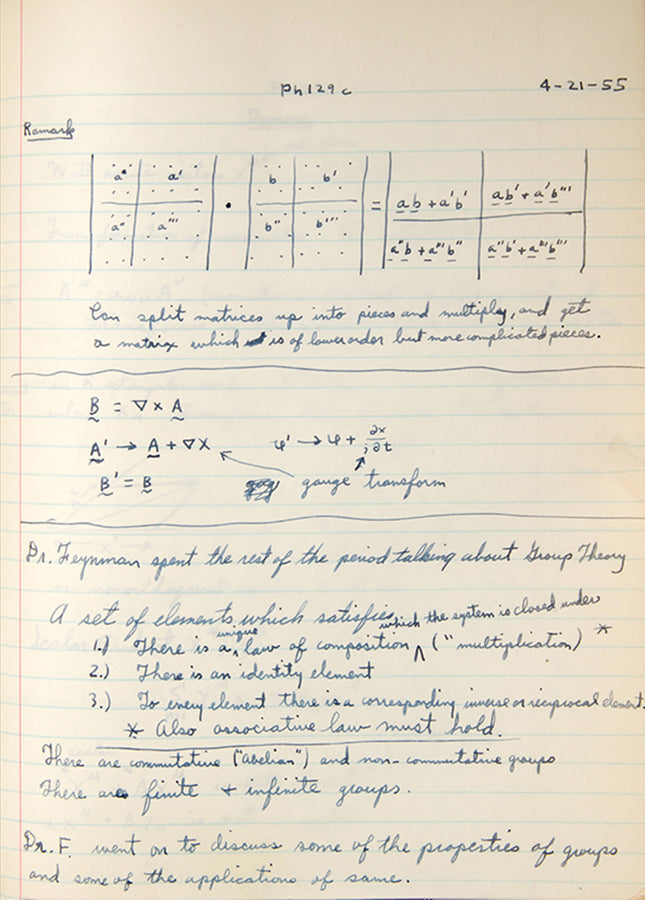 Ph129c 4-21-55
Remark
a° a' b b'
· =
ab + a'b' ab' + a'b'''
a" a''' b" b'''
a"b + a'''b" a"b' + a'''b'''
Can split matrices up into pieces and multiply, and get
a matrix which is of lower order but more complicated pieces.
B = ∇ × A
A' → A + ∇X φ' → φ + ∂x/j∂t
B' = B gauge transform
Dr. Feynman spent the rest of the period talking about Group Theory
A set of elements which satisfies
1.) There is a unique law of composition which the system is closed under ("multiplication) *
2.) There is an identity element
3.) To every element there is a corresponding inverse or reciprocal element.
* Also associative law must hold.
There are commutative ("Abelian") and non-commutative groups
There are finite + infinite groups.
Dr. F. went on to discuss some of the properties of groups
and some of the applications of same.